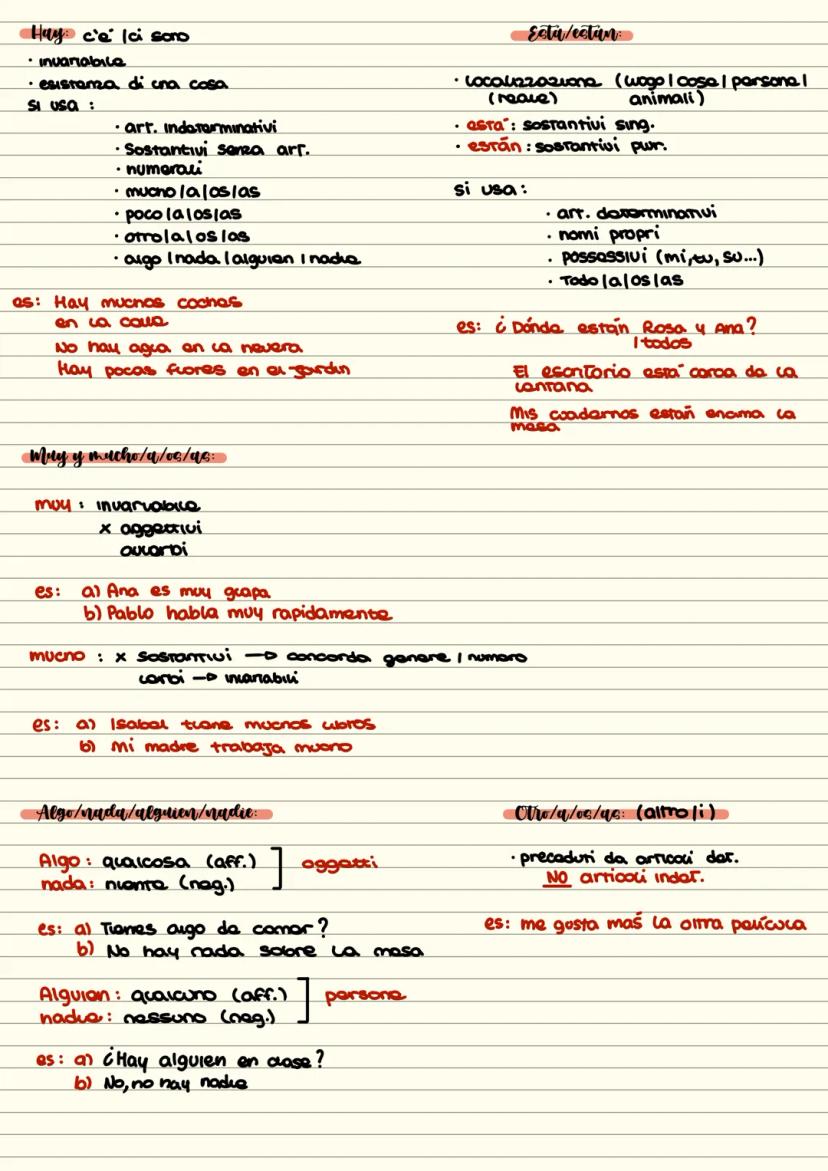 Hay: c'è / ci sono
· invariabile
· esistenza di una cosa
si usa :
· art. indeterminativi
· Sostantivi senza art.
· numerali
· mucho/a/os/as
· poco/a/os/as
· otro/a/os/as
· algo/nada/alguien/nadie
es: Hay muchos coches
en la calle
No hay agua en la nevera
Hay pocas flores en el jardín
Está/están:
· Localizzazione (luogo/cose/persone/
(reale) animali)
· está: sostantivi sing.
· están: sostantivi plur.
si usa:
· art. determinativi
· nomi propri
· possessivi (mi, tu, su...)
· Todo/a/os/as
es: ¿Dónde están Rosa y Ana?
/todos
El escritorio está cerca de la
ventana
Mis cuadernos están encima la
mesa
Muy y mucho/a/os/as:
muy : invariabile
x aggettivi
avverbi
es: a) Ana es muy guapa
b) Pablo habla muy rapidamente
mucho : x sostantivi → concorda genere / numero
verbi → invariabili
es: a) Isabel tiene muchos libros
b) Mi madre trabaja mucho
Algo/nada/alguien/nadie:
Algo: qualcosa (aff.)
nada: niente (neg.)
oggetti
es: a) Tienes algo de comer?
b) No hay nada sobre la mesa
Alguien: qualcuno (aff.)
nadie: nessuno (neg.)
persone
es: a) ¿Hay alguien en clase?
b) No, no hay nadie
Otro/a/os/as: (altro/i)
· preceduti da articoli det.
NO articoli indet.
es: me gusta más la otra película